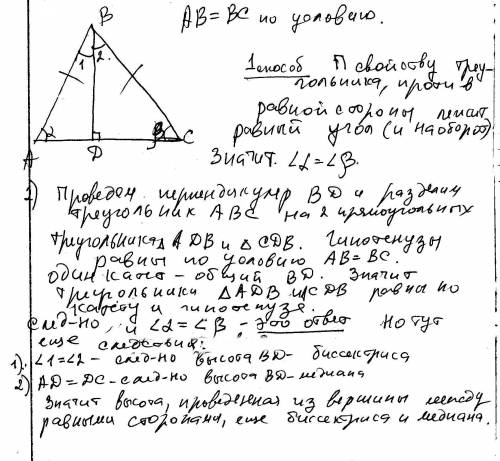 B
AB = BC по условию.
1 2
1 способ П свойству треу-
гольника, против
равной стороны лежит
равный угол (и наоборот)
Значит ∠α = ∠β.
A α D β C
2) Проведем перпендикуляр BD и разделим
треугольник ABC на 2 прямоугольных
треугольника △ADB и △CDB. Гипотенузы
равны по условию AB = BC.
один катет - общий BD. Значит
треугольники △ADB и CDB равны по
катету и гипотенузе.
след-но, и ∠α = ∠β - это ответ но тут
еще следствия:
1). ∠1 = ∠2 - след-но высота BD - биссектриса
2) AD = DC - след-но высота BD - медиана
Значит высота, проведенная из вершины между
равными сторонами, еще биссектриса и медиана.